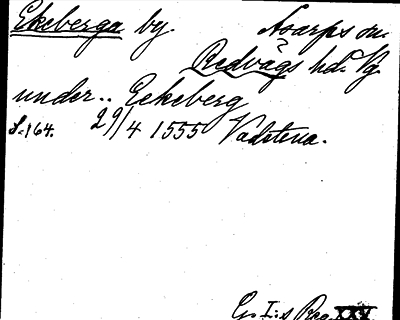 Ekeberga by Asarps sn.
Redvägs hd. Vg
under.. Eekeberg
S. 164. 29/4 1555 Vadstena.
G. I:s Reg. XXV